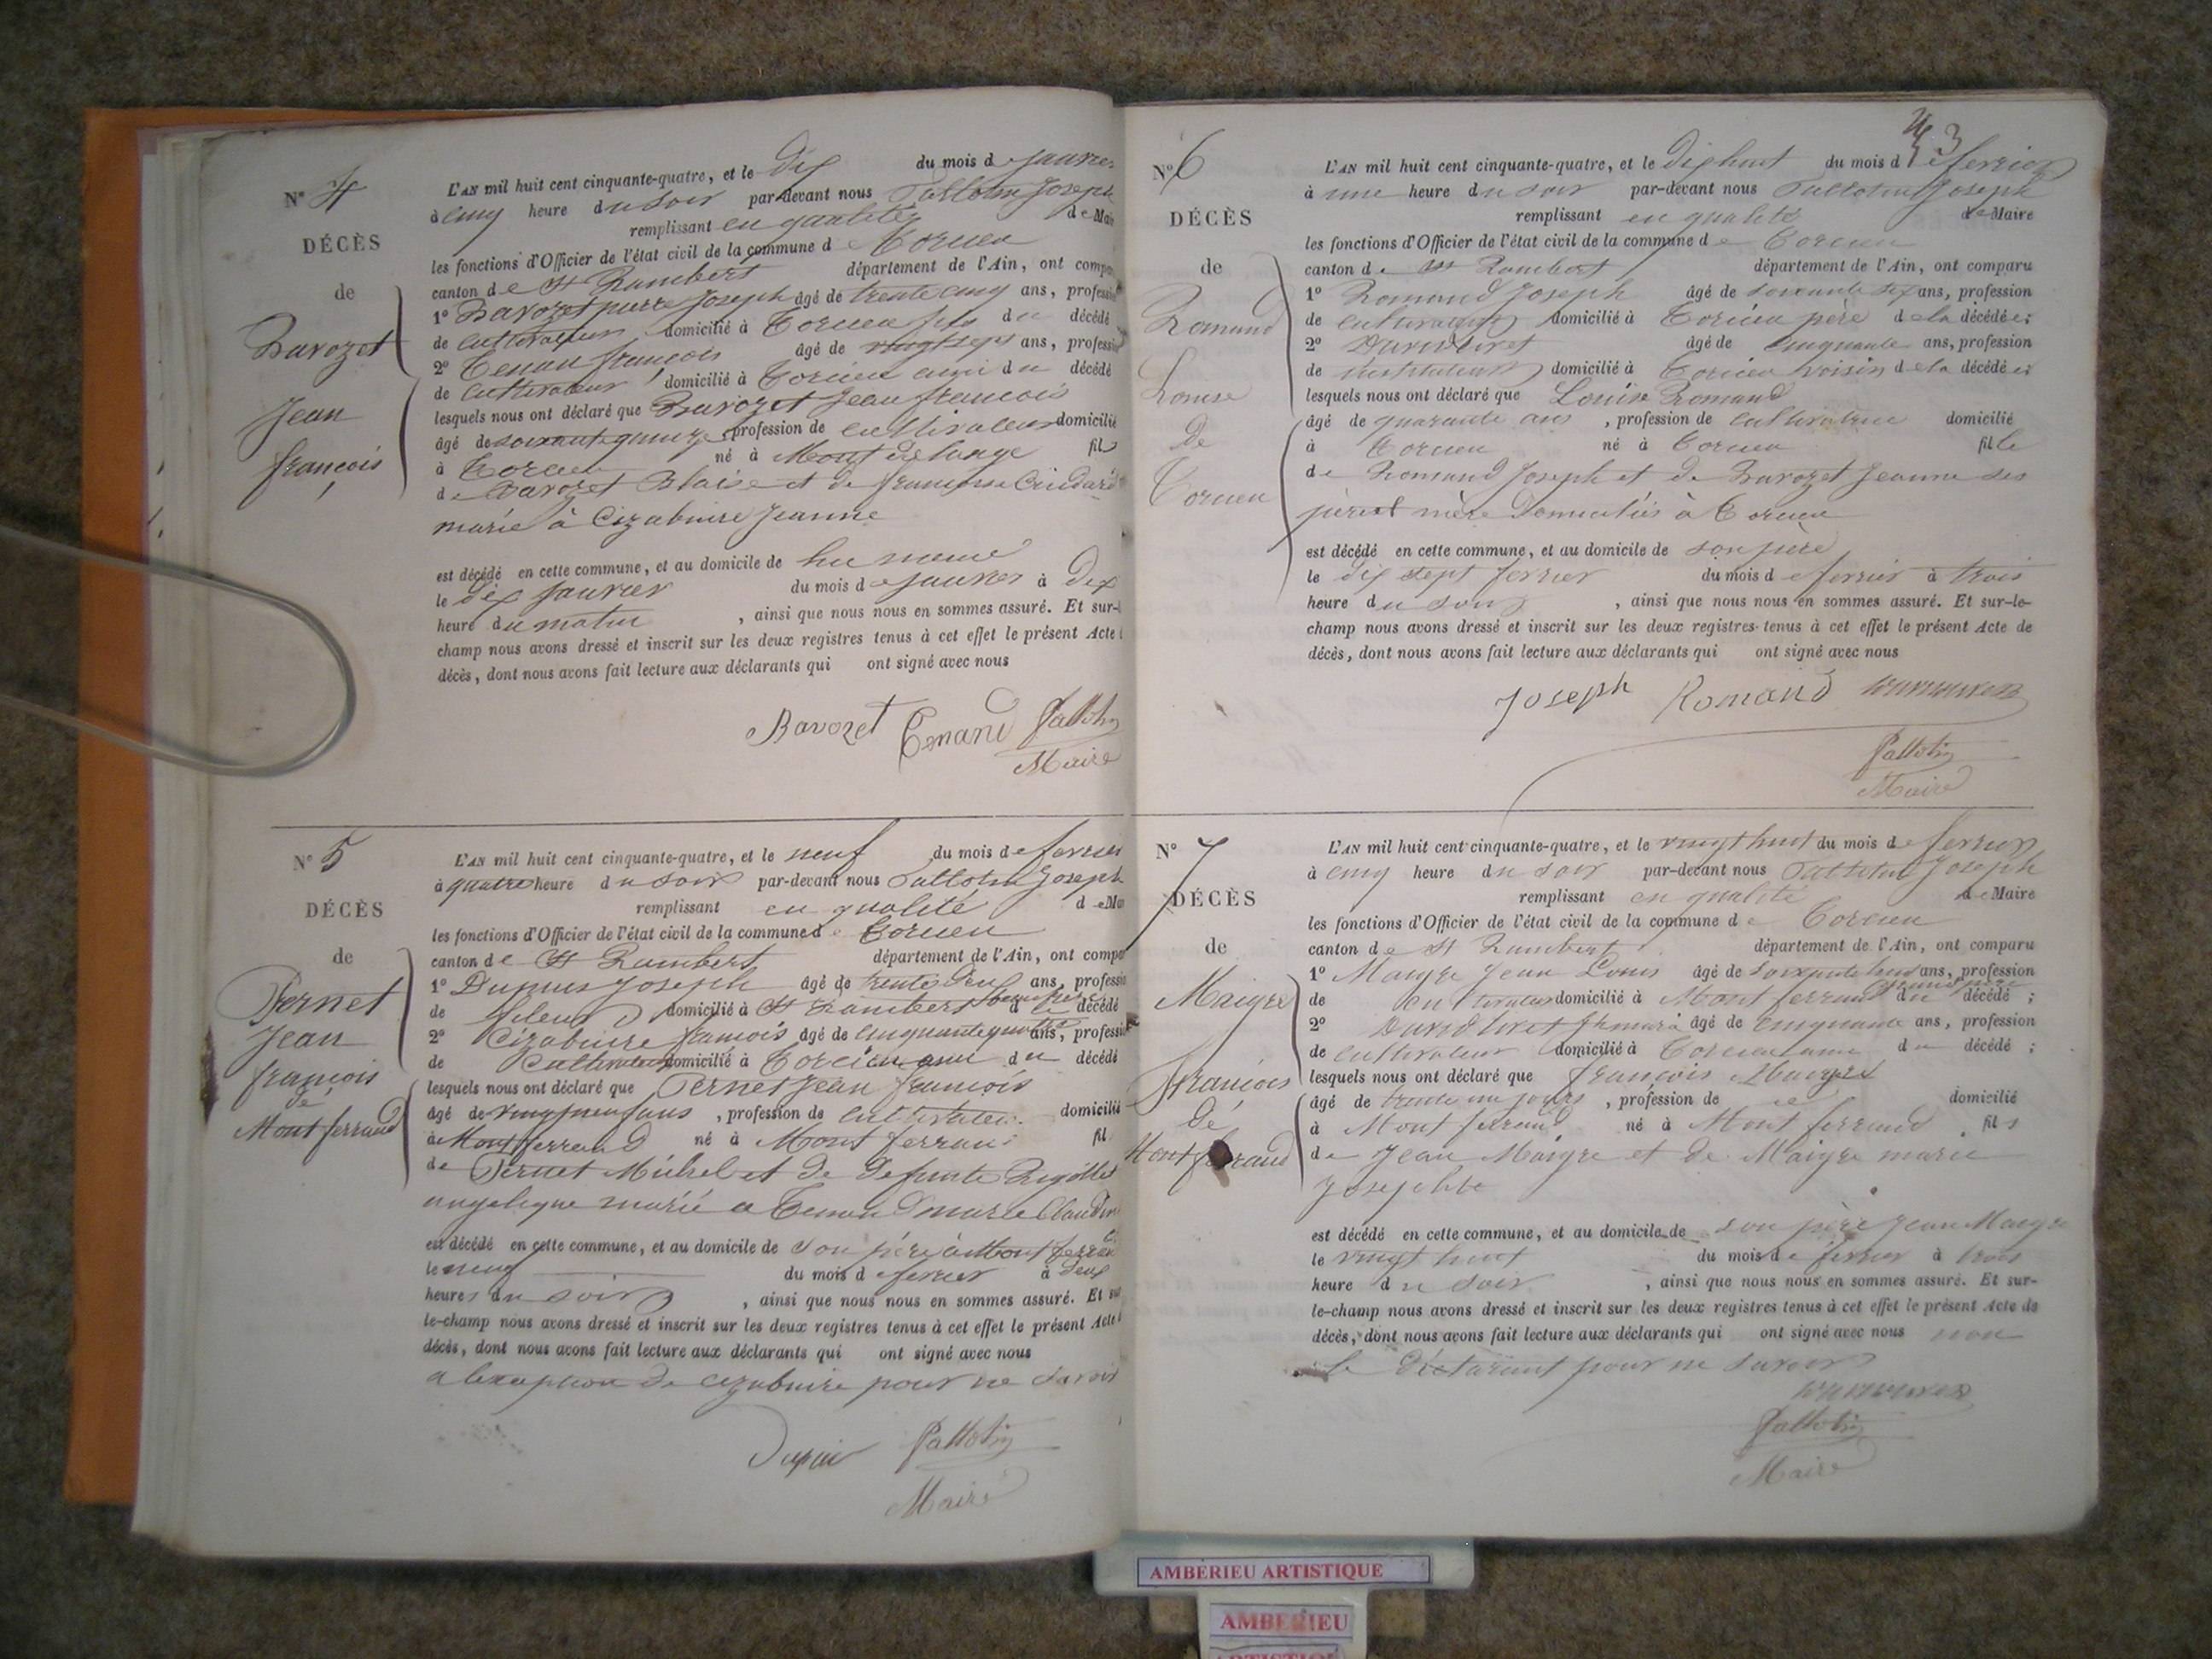 N° 4
DÉCÈS
de
Bavozet
Jean
françois
L'AN mil huit cent cinquante-quatre, et le dix du mois de janvier
à cinq heure du soir par-devant nous Pallotin Joseph
remplissant en qualité de Mai
les fonctions d'Officier de l'état civil de la commune de Torcieu
canton de St Rambert département de l'Ain, ont compa
1° Bavozet pierre Joseph âgé de trente cinq ans, professi
de cultivateur domicilié à Torcieu fils du décédé
2° Tenan françois âgé de vingt sept ans, professi
de cultivateur domicilié à Torcieu ami du décédé
lesquels nous ont déclaré que Bavozet Jean francois
âgé de soixante quinze, profession de cultivateur domicilié
à Torcieu né à Mont de lange fils
de Bavozet Blaise et de françoise
marié à Cizabuire Jeanne
est décédé en cette commune, et au domicile de lui meme
le dix janvier du mois de janvier à dix
heure du matin , ainsi que nous nous en sommes assuré. Et sur-l
champ nous avons dressé et inscrit sur les deux registres tenus à cet effet le présent Acte
décès, dont nous avons fait lecture aux déclarants qui ont signé avec nous
Bavozet Tenand Pallotin
Maire
N° 5
DÉCÈS
de
Pernet
Jean
françois
de
Mont ferrand
L'AN mil huit cent cinquante-quatre, et le neuf du mois de fevrier
à quatre heure du soir par-devant nous Pallotin Joseph
remplissant en qualité de Mai
les fonctions d'Officier de l'état civil de la commune de Torcieu
canton de St Rambert département de l'Ain, ont compa
1° Dupuis Joseph âgé de trente deux ans, professio
de fileur domicilié à St Rambert beau frere d le décédé
2° Cizabuire françois âgé de cinquante quatre ans, professi
de cultivateur domicilié à Torcieu ami du décédé
lesquels nous ont déclaré que Pernet Jean françois
âgé de vingt neuf ans , profession de cultivateur domicilié
à Mont ferrand né à Mont ferrand fil
de Pernet Michel et de defunte Rigollet
angelique marié a Tenand marie Claudine
est décédé en cette commune, et au domicile de son père à Mont ferrand
le neuf du mois de fevrier à deux
heures du soir , ainsi que nous nous en sommes assuré. Et sur
le-champ nous avons dressé et inscrit sur les deux registres tenus à cet effet le présent Acte
décès, dont nous avons fait lecture aux déclarants qui ont signé avec nous
a l'exception de cizabuire pour ne savoir
Dupui Pallotin
Maire
3
N° 6
DÉCÈS
de
Romand
Louise
de
Torcieu
L'AN mil huit cent cinquante-quatre, et le dix huit du mois de fevrier
à une heure du soir par-devant nous Pallotin Joseph
remplissant en qualité de Maire
les fonctions d'Officier de l'état civil de la commune de Torcieu
canton de St Rambert département de l'Ain, ont comparu
1° Romand Joseph âgé de soixante dix ans, profession
de cultivateur domicilié à Torcieu père de la décédée;
2° âgé de cinquante ans, profession
de instituteur domicilié à Torcieu voisin de la décédée;
lesquels nous ont déclaré que Louise Romand
âgé de quarante ans , profession de cultivatrice domicilié
à Torcieu né à Torcieu fille
de Romand Joseph et de Bavozet Jeanne ses
père et mère domiciliés à Torcieu
est décédé en cette commune, et au domicile de son père
le dix sept fevrier du mois de fevrier à trois
heure du soir , ainsi que nous nous en sommes assuré. Et sur-le-
champ nous avons dressé et inscrit sur les deux registres tenus à cet effet le présent Acte de
décès, dont nous avons fait lecture aux déclarants qui ont signé avec nous
Joseph Romand
Pallotin
Maire
N° 7
DÉCÈS
de
Maigre
françois
de
Mont ferrand
L'AN mil huit cent cinquante-quatre, et le vingt huit du mois de fevrier
à cinq heure du soir par-devant nous Pallotin Joseph
remplissant en qualité de Maire
les fonctions d'Officier de l'état civil de la commune de Torcieu
canton de St Rambert département de l'Ain, ont comparu
1° Maigre Jean Louis âgé de soixante huit ans, profession
de cultivateur domicilié à Mont ferrand grand père du décédé;
2° âgé de cinquante ans, profession
de cultivateur domicilié à Torcieu ami du décédé;
lesquels nous ont déclaré que françois Maigre
âgé de trente un jours , profession de domicilié
à Mont ferrand né à Mont ferrand fils
de Jean Maigre et de Maigre marie
Josephte
est décédé en cette commune, et au domicile de son père Jean Maigre
le vingt huit du mois de fevrier à trois
heure du soir , ainsi que nous nous en sommes assuré. Et sur-
le-champ nous avons dressé et inscrit sur les deux registres tenus à cet effet le présent Acte de
décès, dont nous avons fait lecture aux déclarants qui ont signé avec nous non
le déclarant pour ne savoir
Pallotin
Maire
AMBERIEU ARTISTIQUE
AMBERIEU
ARTISTIQUE